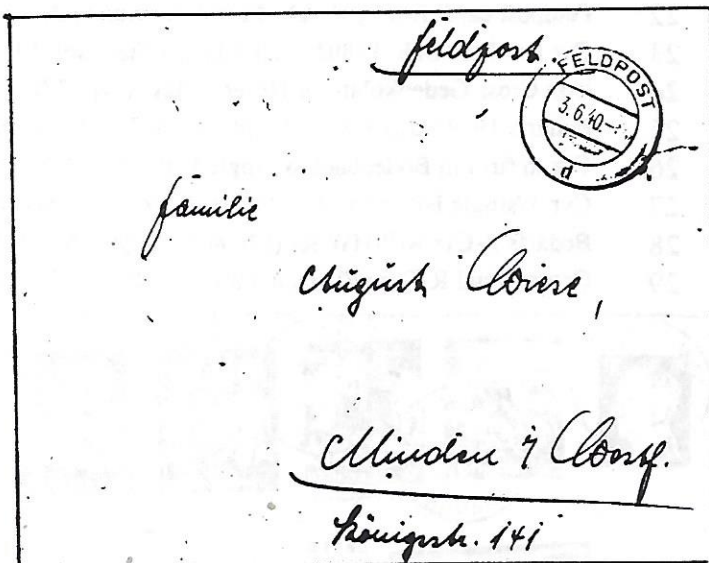 Feldpost
FELDPOST
3.6.40.-
d
Familie
August Wiese,
Minden i/ Westf.
Königsstr. 141